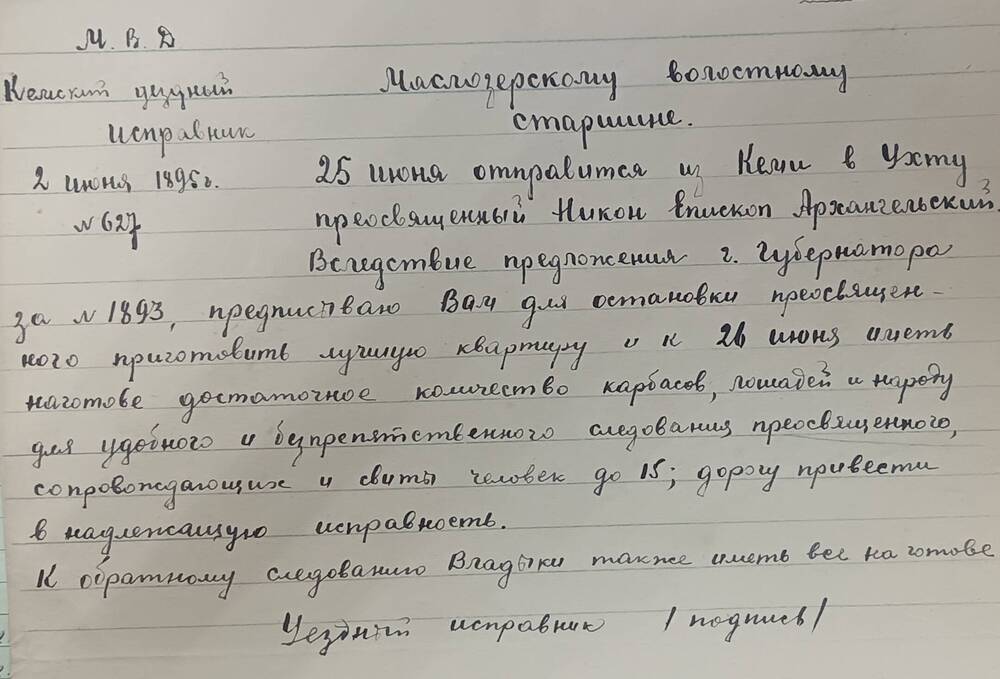 М. В. Д
Кемский уездный
исправник
2 июня 1895 г.
№ 627
Маслозерскому волостному
старшине.
25 июня отправится из Кеми в Ухту
преосвященный Никон Епископ Архангельский.
Вследствие предложения г. Губернатора
за № 1893, предписываю Вам для остановки преосвящен-
ного приготовить лучшую квартиру и к 26 июня иметь
наготове достаточное количество карбасов, лошадей и народу
для удобного и безпрепятственного следования преосвященного,
сопровождающих и свиты человек до 15; дорогу привести
в надлежащую исправность.
К обратному следованию Владыки также иметь все на готове
Уездный исправник /подпись/